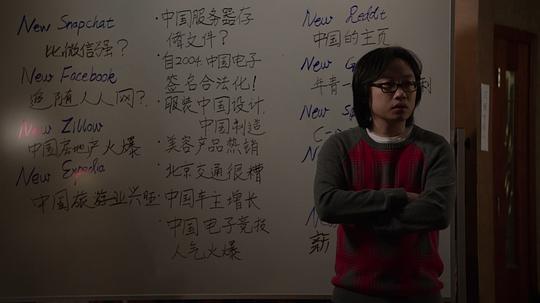 New Snapchat
比微信强？
New Facebook
追随人人网？
New Zillow
中国房地产火爆
New Expedia
中国旅游业兴旺
·中国服务器存
储文件？
·自2004.中国电子
签名合法化！
·服装中国设计.
中国制造
·美容产品热销
·北京交通很糟
·中国车主增长
·中国电子竞技
人气火爆
New Reddit
中国的主页
New
New
New
新